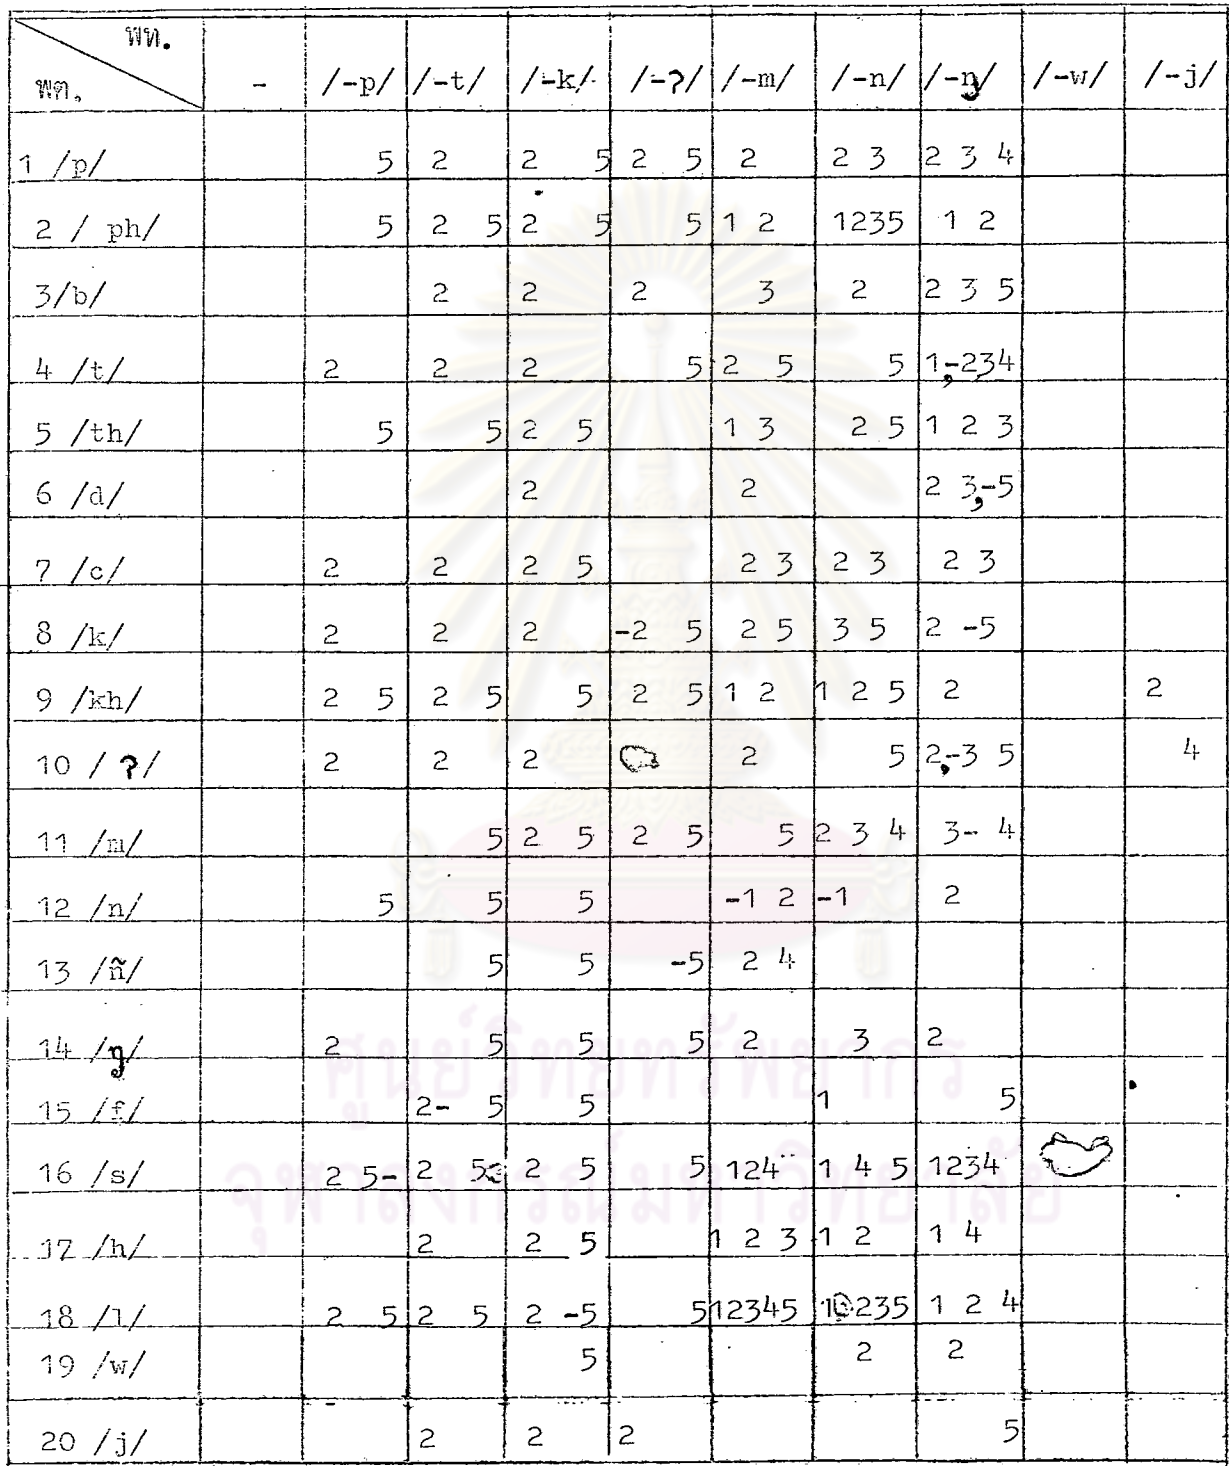 พท.
พต. - /-p/ /-t/ /-k/ /-ʔ/ /-m/ /-n/ /-ŋ/ /-w/ /-j/
1 /p/ 5 2 2 5 2 5 2 2 3 2 3 4
2 / ph/ 5 2 5 2 5 5 1 2 1235 1 2
3/b/ 2 2 2 3 2 2 3 5
4 /t/ 2 2 2 5 2 5 5 1,-234
5 /th/ 5 5 2 5 1 3 2 5 1 2 3
6 /d/ 2 2 2 3,-5
7 /c/ 2 2 2 5 2 3 2 3 2 3
8 /k/ 2 2 2 -2 5 2 5 3 5 2 -5
9 /kh/ 2 5 2 5 5 2 5 1 2 1 2 5 2 2
10 / ʔ/ 2 2 2 2 5 2,-3 5 4
11 /m/ 5 2 5 2 5 5 2 3 4 3- 4
12 /n/ 5 5 5 -1 2 -1 2
13 /ñ/ 5 5 -5 2 4
14 /ŋ/ 2 5 5 5 2 3 2
15 /f/ 2- 5 5 1 5
16 /s/ 2 5- 2 5 2 5 5 124 1 4 5 1234
17 /h/ 2 2 5 1 2 3 1 2 1 4
18 /l/ 2 5 2 5 2 -5 5 12345 1 235 1 2 4
19 /w/ 5 2 2
20 /j/ 2 2 2 5
ศูนย์วิทยทรัพยากร
จุฬาลงกรณ์มหาวิทยาลัย